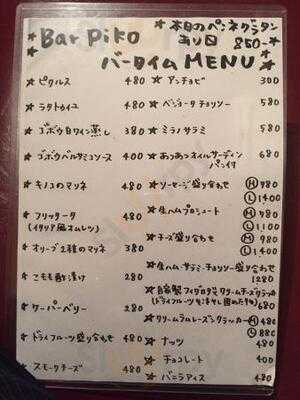 Bar Piko
本日のペンネグラタン
あり〼 850-
バータイム MENU!
★ピクルス 480
★ラタトゥイユ 480
★ゴボウ白ワイン蒸し 380
★ゴボウバルサミコソース 400
★キノコのマリネ 480
★フリッタータ 480
(イタリア風オムレツ)
★オリーブ2種のマリネ 380
★こもも酢漬け 280
★ケーパーベリー 280
★ドライフルーツ盛り合わせ 480
★スモークチーズ 480
★アンチョビ 300
★ベジョータチョリソー 580
★ミラノサラミ 580
★あつあつオイルサーディン 680
パン付
★ソーセージ盛り合わせ Ⓜ980
Ⓛ1400
★生ハムプロシュート Ⓜ980
Ⓛ1900
★チーズ盛り合わせ Ⓜ980
Ⓛ1400
★生ハム・サラミ・チョリソー盛り合わせ
1280
★自家製フィグログ&クリームチーズクラッカー
(ドライフルーツを冷やし固めたもの) 680
★クリームラムレーズンクラッカー Ⓜ480
Ⓛ880
★ナッツ 480
★チョコレート 400
★バニラアイス 480